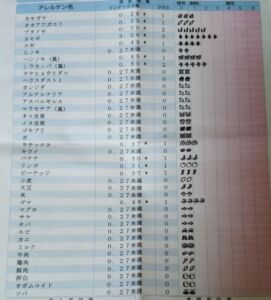 アレルゲン名 クラス
カモガヤ 0.28* 1
オオアワガエリ 0.33* 1
ブタクサ 0.75* 2
ヨモギ 2
スギ 1
ヒノキ 0.27未満
ハンノキ(属) 0.45* 1
シラカンバ(属) 0.50* 2
ヤケヒョウヒダニ 0.27未満
ハウスダスト1 0.27未満
カンジダ 0.27未満
アルテルナリア 0.27未満
アスペルギルス 0.27未満
マラセチア(属) 0.27未満
ネコ皮屑 0.27未満
イヌ皮屑 0.27未満
ゴキブリ 0.27未満
ガ 0.27未満
ラテックス 0.37* 1
キウイ 0.27未満
バナナ 0.30* 1
リンゴ 0.31* 1
ピーナッツ 0.37* 1
小麦 0.27未満
大豆 0.27未満
米 0.27未満
ゴマ 0.48* 1
マグロ 0.27未満
サケ 0.27未満
サバ 0.27未満
エビ 0.27未満
カニ 0.27未満
ミルク 0.27未満
牛肉 0.27未満
鶏肉 0.27未満
豚肉 0.27未満
卵白 0.27未満
オボムコイド 0.27未満
ソバ 0.27未満